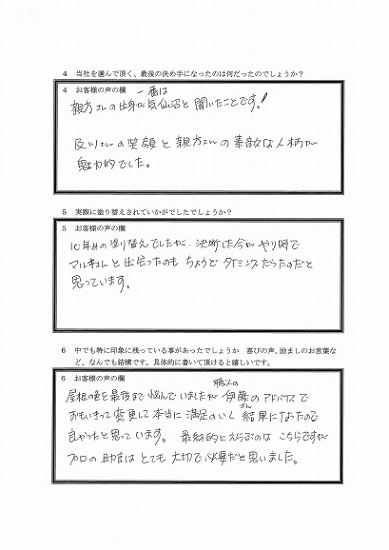 4 当社を選んで頂く、最後の決め手になったのは何だったのでしょうか？
4 お客様の声の欄
一番は
親方さんの出身が気仙沼と聞いたことです！
及川さんの笑顔と親方さんの素敵な人柄が
魅力的でした。
5 実際に塗り替えされていかがでしたでしょうか？
5 お客様の声の欄
10年めの塗り替えでしたが、決断した今が やり時で
マルキさんと出会ったのも ちょうど タイミングだったのだと
思っています。
6 中でも特に印象に残っている事があったでしょうか 喜びの声、励ましのお言葉な
ど、なんでも結構です。具体的に書いて頂けると嬉しいです。
6 お客様の声の欄
職人の
屋根の色を最後まで悩んでいましたが 伊藤のアドバイスで
さん
おもいきって変更して本当に満足のいく 結果になったので
良かったと思っています。 最終的にえらぶのは こちらですが
プロの助言は とても 大切で必要だと思いました。